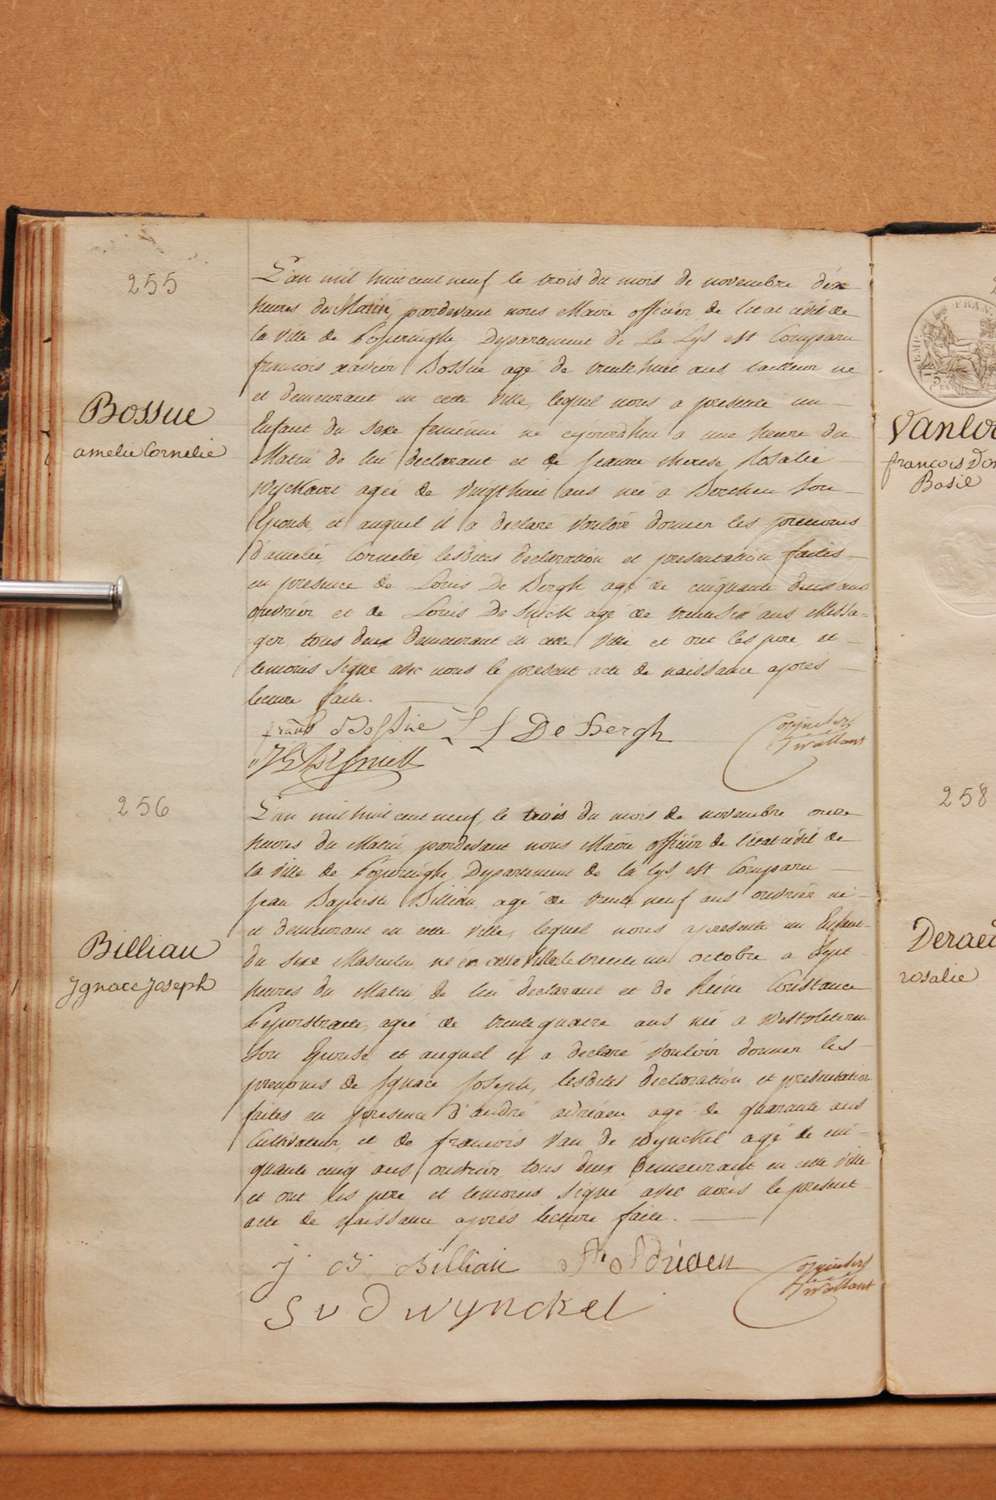 255
Bossue
amelie Cornelie
L'an mil huit cent neuf le trois du mois de novembre dix
heures du Matin, pardevant nous Maire officier de l'etat civil de
la ville de Poperinghe Departement de La Lys est Comparu
françois xavier Bossue agé de trente huit ans né
et demeurant en cette ville, lequel nous a presenté un
Enfant du sexe feminin né cejourdhui a une heure du
Matin de lui declarant et de Jeanne therese Rosalie
agée de vingt huit ans née a son
Epouse et auquel il a declaré vouloir donner les prenoms
d'amelie Cornelie lesdites declaration et presentation faites
en presence de Louis De Bergh agé de cinquante deux ans
ouvrier et de Louis agé de trente six ans Messa-
ger tous deux demeurant en cette ville et ont les pere et
temoins signé avec nous le present acte de naissance apres
lecture faite.
frans Bossue L L De Bergh
256
Billiau
Ignace Joseph
L'an mil huit cent neuf, le trois du mois de novembre onze
heures du Matin pardevant nous Maire officier de l'etat civil de
la ville de Poperinghe, Departement de la Lys est Comparu
Jean Baptiste Billiau, agé de trente neuf ans ouvrier né
et demeurant en cette ville, lequel nous a presenté un Enfant
du sexe Masculin, né en cette ville le trente un octobre a Sept
heures du Matin de lui declarant et de Reine Constance
agée de trente quatre ans née a westvleteren
son Epouse et auquel il a declaré vouloir donner les
prenoms de Ignace Joseph, lesdites declaration et presentation
faites en presence d'andré adriaen agé de quarante ans
Cultivateur, et de françois Van de Wynckel agé de cin-
quante cinq ans ouvrier tous deux demeurant en cette ville
et ont les pere et temoins signé avec nous le present
acte de Naissance apres lecture faite.
J B Billiau A Adriaen
S V D Wynckel
Vanlo
françois Do
Basile
258
Derae
rosalie